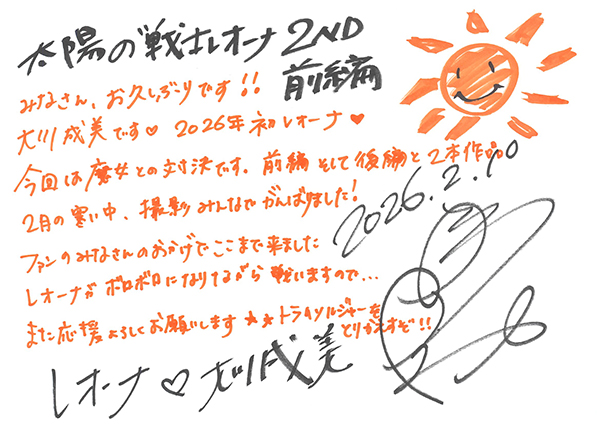 太陽の戦士レオーナ 2ND
前編
みなさん、お久しぶりです!!
大川成美です♥ 2026年初レオーナ♥
今回は魔女との対決です。前編そして後編と2本作品
2月の寒い中、撮影みんなでがんばりました!
2026.2.10
ファンのみなさんのおかげでここまで来ました
レオーナがボロボロになりながら戦いますので…
また応援よろしくお願いします★★トライソルジャーを
とりかえすぞ!!
レオーナ♡大川成美